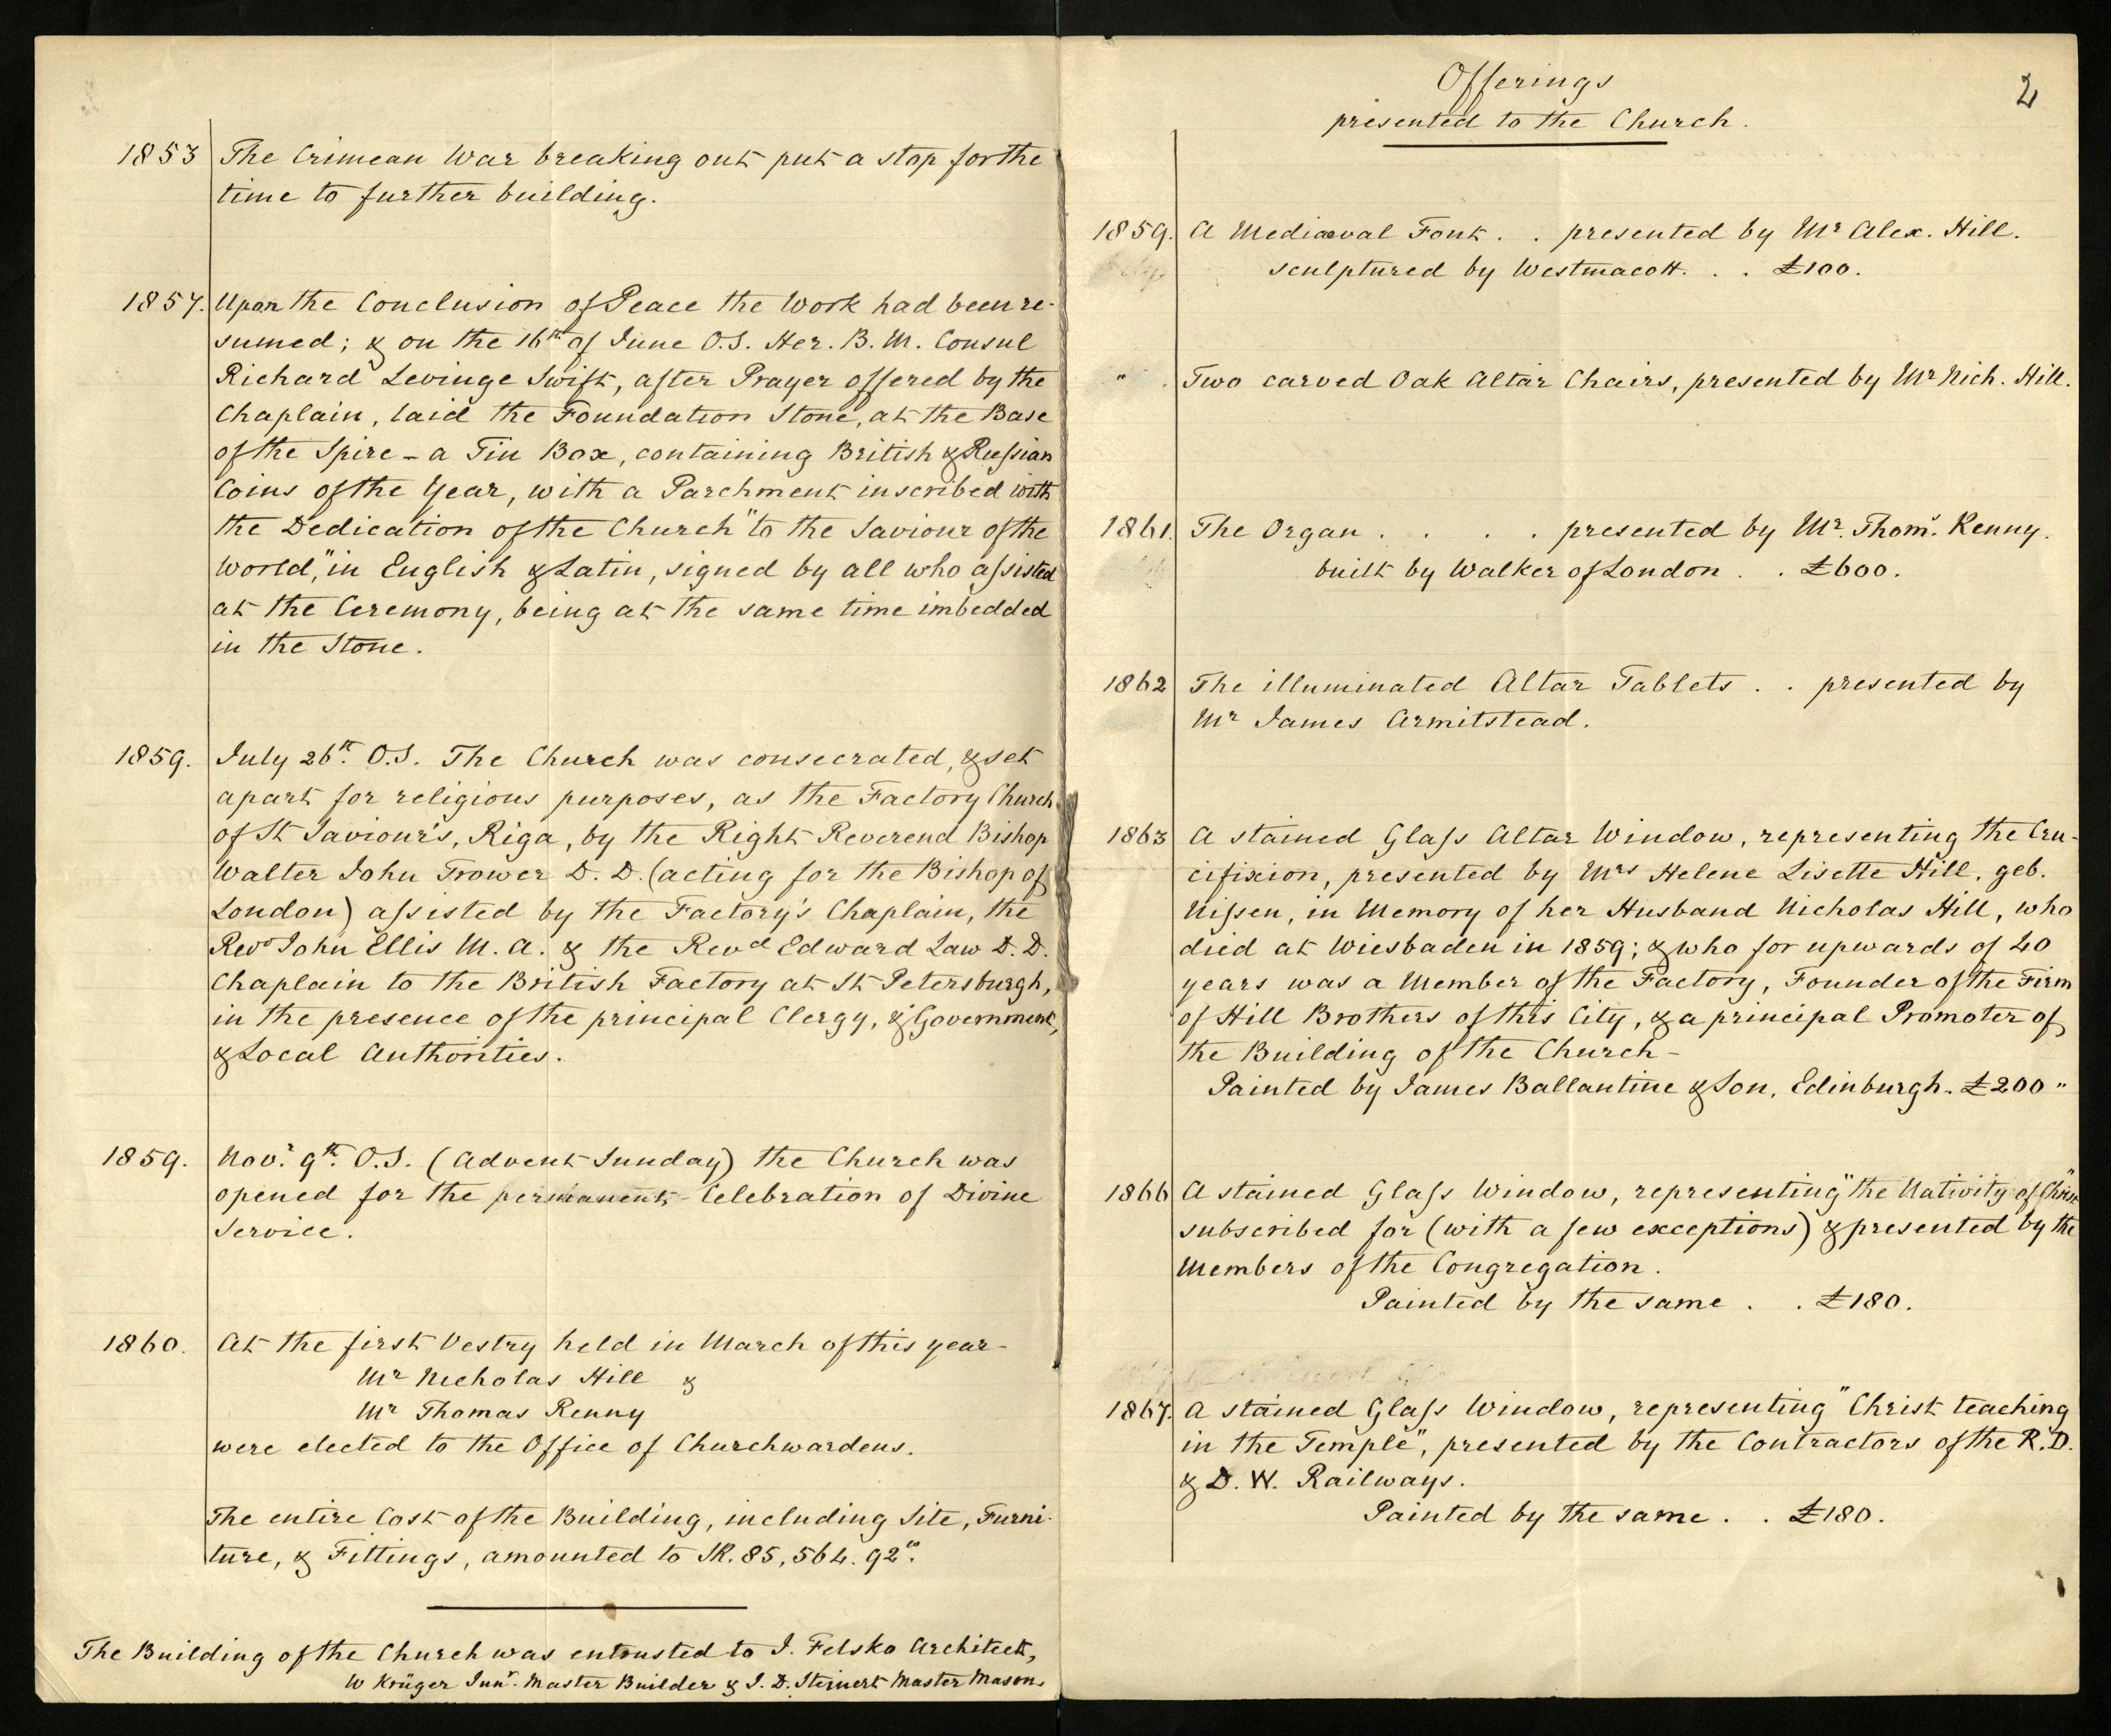 1853 The Crimean War breaking out put a stop for the
time to further building.
1857. Upon the Conclusion of Peace the Work had been re-
sumed; & on the 16th of June O.S. Her. B. M. Consul
Richard Levinge Swift, after Prayer offered by the
Chaplain, laid the Foundation Stone, at the Base
of the Spire - a Tin Box, containing British & Russian
Coins of the Year, with a Parchment inscribed with
the Dedication of the Church "to the Saviour of the
World," in English & Latin, signed by all who assisted
at the Ceremony, being at the same time imbedded
in the Stone.
1859. July 26th. O.S. The Church was consecrated, & set
apart for religious purposes, as the Factory Church
of St Saviour's, Riga, by the Right Reverend Bishop
Walter John Trower D. D. (acting for the Bishop of
London) assisted by the Factory's Chaplain, the
Revd John Ellis M. A. & the Revd Edward Law D. D.
Chaplain to the British Factory at St Petersburgh,
in the presence of the principal Clergy, & Government,
& Local Authorities.
1859. Novr. 9th. O.S. (Advent Sunday) the Church was
opened for the permanent Celebration of Divine
Service.
1860. At the first Vestry held in March of this year-
Mr Nicholas Hill &
Mr Thomas Renny
were elected to the Office of Churchwardens.
The entire Cost of the Building, including Site, Furni-
ture, & Fittings, amounted to SR. 85,564. 92".
The Building of the Church was entrusted to J. Felsko Architect,
W Krüger Junr. Master Builder & J. D. Steinert Master Mason.
2
Offerings
presented to the Church.
1859. A Mediæval Font . . presented by Mr Alex. Hill.
sculptured by Westmacott. . . £100.
" . Two carved Oak Altar Chairs, presented by Mr Nich. Hill.
1861. The Organ . . . . presented by Mr. Thoms. Renny.
built by Walker of London . . £600.
1862 The illuminated Altar Tablets . . presented by
Mr James Armitstead.
1863 A stained Glass Altar Window, representing the Cru-
cifixion, presented by Mrs Helene Lisette Hill, geb.
Nissen, in Memory of her Husband Nicholas Hill, who
died at Wiesbaden in 1859; & who for upwards of 40
years was a Member of the Factory, Founder of the Firm
of Hill Brothers of this City, & a principal Promoter of
the Building of the Church-
Painted by James Ballantine & Son, Edinburgh. £200 "
1866 A stained Glass Window, representing "the Nativity of Christ"
subscribed for (with a few exceptions) & presented by the
Members of the Congregation.
Painted by the same . . £180.
1867. A stained Glass Window, representing "Christ teaching
in the Temple", presented by the Contractors of the R. D.
& D. W. Railways.
Painted by the same . . £180.